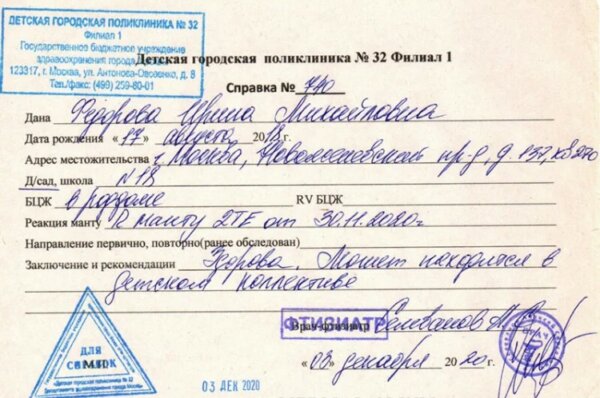 ДЕТСКАЯ ГОРОДСКАЯ ПОЛИКЛИНИКА № 32
Филиал 1
Государственное бюджетное учреждение
здравоохранения города
123317, г. Москва, ул. Антонова-Овсеенко, д. 8
Тел./факс: (499) 259-80-01
Детская городская поликлиника № 32 Филиал 1
Справка № 740
Дана Федорова Ирина Михайловна
Дата рождения «17» августа г.
Адрес местожительства г. Москва, пр-д, д. 137, кв 270
Д/сад, школа N 18
БЦЖ в роддоме RV БЦЖ
Реакция манту R манту 2TE от 30.11.2020г
Направление первично, повторно(ранее обследован)
Заключение и рекомендации Здорова. Может находится в
детском коллективе
ФТИЗИАТР
Врач-фтизиатр Селеванов
«03» декабря 2020г.
ДЛЯ
СПРАВОК
М.П.
«Детская городская поликлиника № 32
Департамента здравоохранения города Москвы»
03 ДЕК 2020